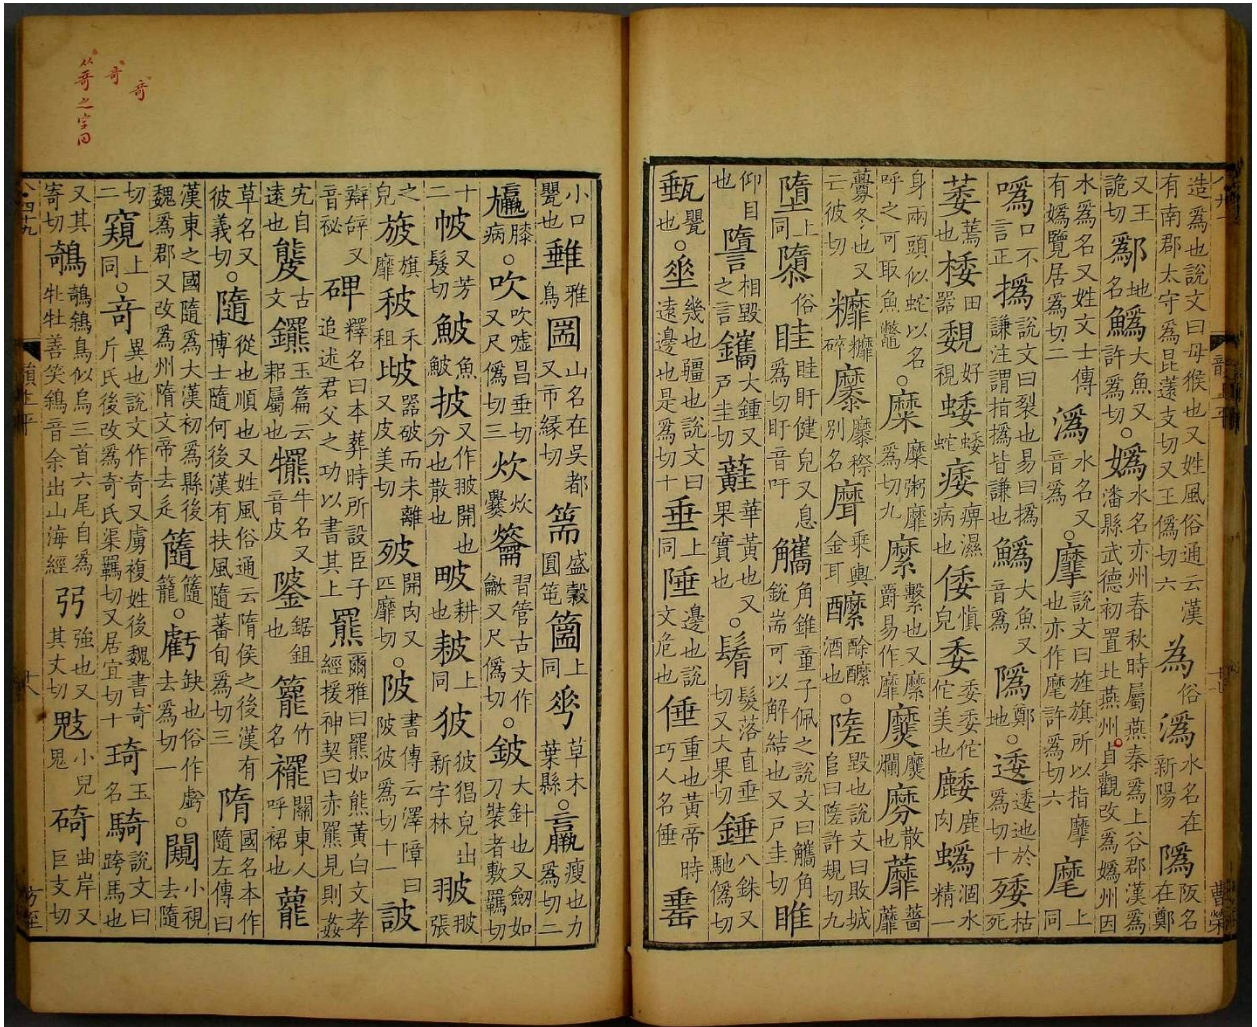 造爲也說文曰母猴也又姓風俗通云漢有南郡太守爲昆薳支切又王僞切六 為俗 潙水名在新陽 隝阪名在鄭
又王詭切 鄬地名 鰞大魚又許爲切。嬀水名亦州春秋時屬燕秦爲上谷郡漢爲潘縣武德初置北燕州貞觀改爲嬀州因
水爲名又姓文士傳有嬀覽居爲切二 潙水名又音爲。摩說文曰旌旗所以指摩也亦作麾許爲切六 麾上同
噅口不言正 撝說文曰裂也易曰撝謙注謂指撝皆謙也 鰞大魚又音爲 隝鄭地。逶逶迆於爲切十 㱧枯死
萎蔫也 㮃田器 覣好視 蜲蜲蛇 痿痹濕病也 倭慎皃 委委委佗佗美也 䴧鹿肉 蟡涸水精一
身兩頭似蛇以名呼之可取魚鼈。糜糜粥靡爲切九 縻繫也又縻爵易作靡 爢爢爛 散也 蘼蘠蘼
虋冬也又云彼切 碎 穄別名 乘輿金耳 醾酴醾酒也。隓毀也說文曰敗城𨸏曰隓許規切九
墮上同 隳俗 眭眭盱健皃又息爲切盱音吁 觿角錐童子佩之說文曰觿角銳耑可以解結也又戶圭切 睢
仰目也 䜐相毀之言 鑴大鍾又戶圭切 蘳華黃也又果實也。鬌髮落直垂切又大果切 錘八銖又馳僞切
甀甖也。𡍮幾也疆也說文曰遠邊也是爲切十 垂上同 陲邊也說文危也 倕重也黃帝時巧人名倕 䍋
小口甖也 雖雅鳥 圌山名在吳都又市緣切 篅盛穀圓笔 圖上同 𠌶草木葉縣。羸瘦也力爲切二
𤺋膝病。吹吹噓昌垂切又尺僞切三 炊炊爨 籥習管古文作龡又尺僞切。鈹大針也又劒如刀裝者敷羈切
十 帔又芳髲切 鮍魚鮍 披又作翍開也分也散也 畭耕也 耚上同 狓狓猖皃出新字林 翍翍張
之皃 旇旗靡 秛禾租 㱟器破而未離又皮美切 𣧯開肉又匹靡切。陂書傳云澤障曰陂彼爲切十一 詖
辯辝又音祕 碑釋名曰本葬時所設臣子追述君父之功以書其上 羆爾雅曰羆如熊黃白文孝經援神契曰赤羆見則姦
宄自遠也 古文 鑼玉篇云耜屬也 犤牛名又音皮 鋸鉏也 籠竹名 襬關東人呼裙也 蘢
草名又彼義切。隨從也順也又姓風俗通云隋侯之後漢有博士隨何後漢有扶風隨蕃旬爲切三 隋國名本作隨左傳曰
漢東之國隨爲大漢初爲縣後魏爲郡又改爲州隋文帝去辵 籠。虧缺也俗作虧去爲切一。闚小視去隨
切二 窺上同。奇異也說文作奇又虜複姓後魏書奇斤氏後改爲奇氏渠羈切又居宜切十 琦玉名 騎說文曰跨馬也
又其寄切 鵸鵸鵌鳥似烏三首六尾自爲牝牡善笑鵌音余出山海經 弜強也又其丈切 鬾小兒鬼 碕曲岸又巨支切
奇
奇
从奇之字同